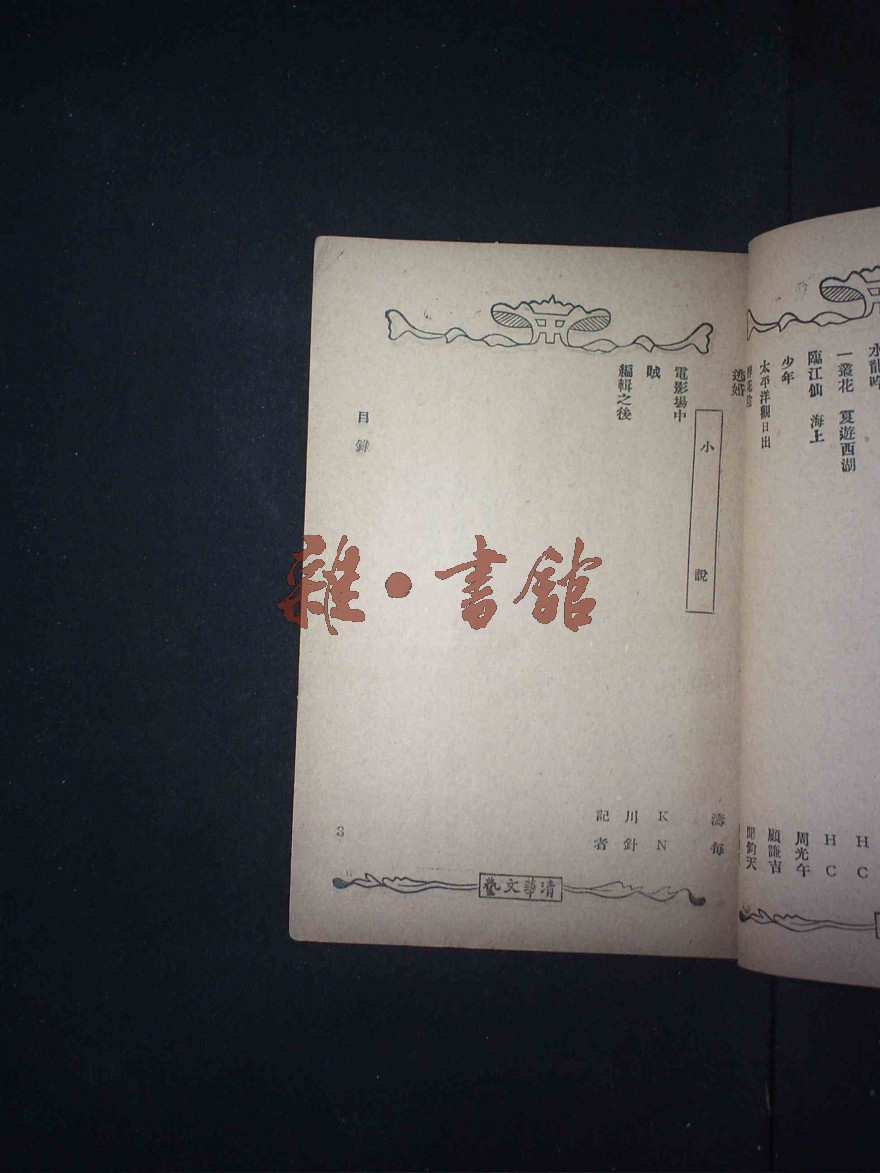 水龍吟
H C
一叢花 夏遊西湖
H C
臨江仙 海上
周光午
少年
顧謙吉
太平洋觀日出
聞鈞天
逃婚
濤每
小說
電影場中
K N
賊
川針
編輯之後
記者
目錄
3
清華文藝
雜·書館